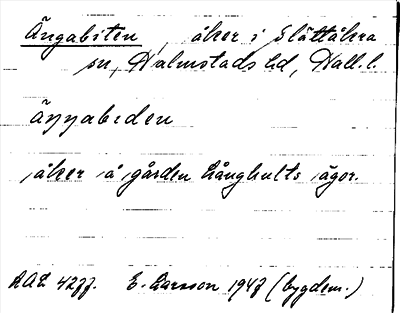 Ängabiten, åker i Slättåkra
sn, Halmstads hd, Hall. l.
äŋŋabiden
åker å gården Långhults ägor.
E. Larsson 1947 (bygdem.)